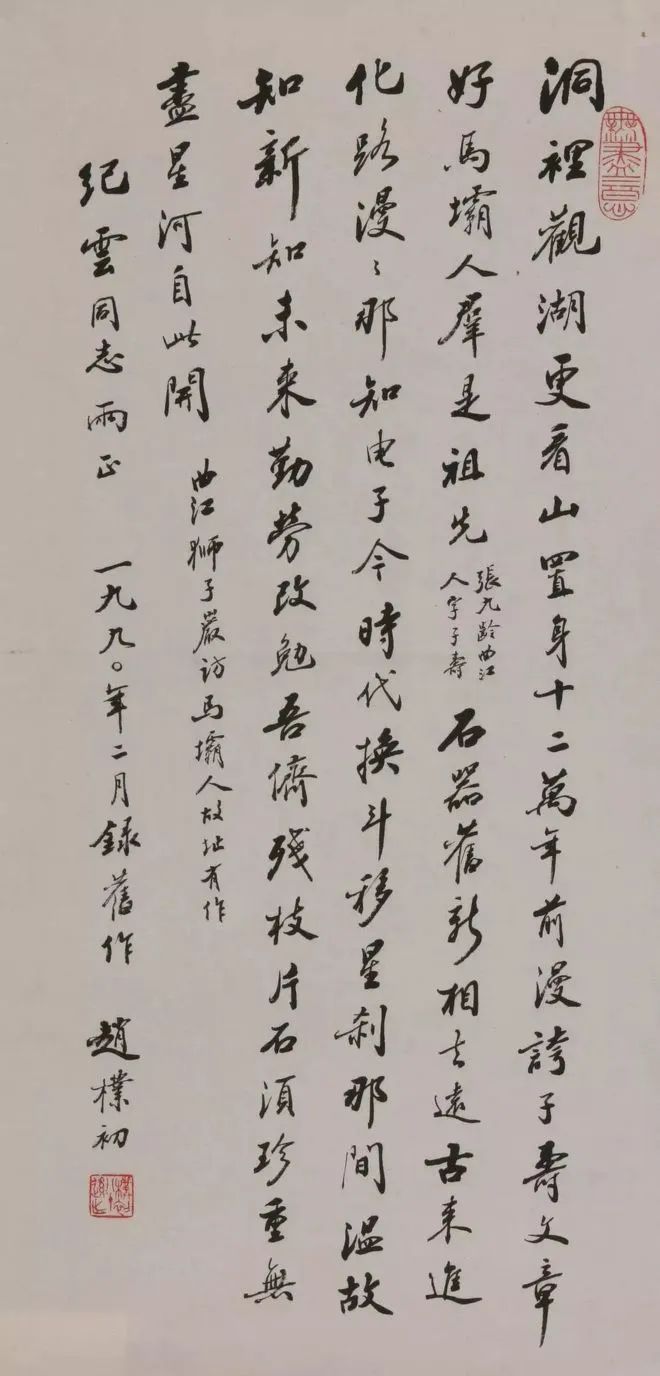 洞裡觀湖更看山置身十二萬年前漫誇子壽文章
好馬壩人羣是祖先張九齡曲江人字子壽石器舊新相去遠古来進
化路漫〻那知电子今時代換斗移星刹那間温故
知新知未来勤勞改勉吾儕殘枝片石須珍重無
盡星河自此開曲江獅子巖訪馬壩人故址有作
紀雲同志兩正一九九〇年二月録舊作趙樸初
無盡意